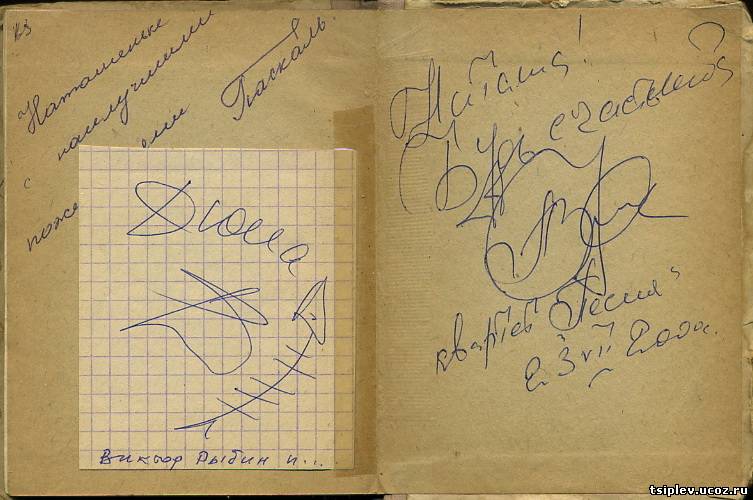 Наташеньке
с наилучшими
поже ями Паскаль.
Дюна
Виктор Рыбин и...
Наташа!
Будь счастлива
квартет "Песня"
tsiplev.ucoz.ru